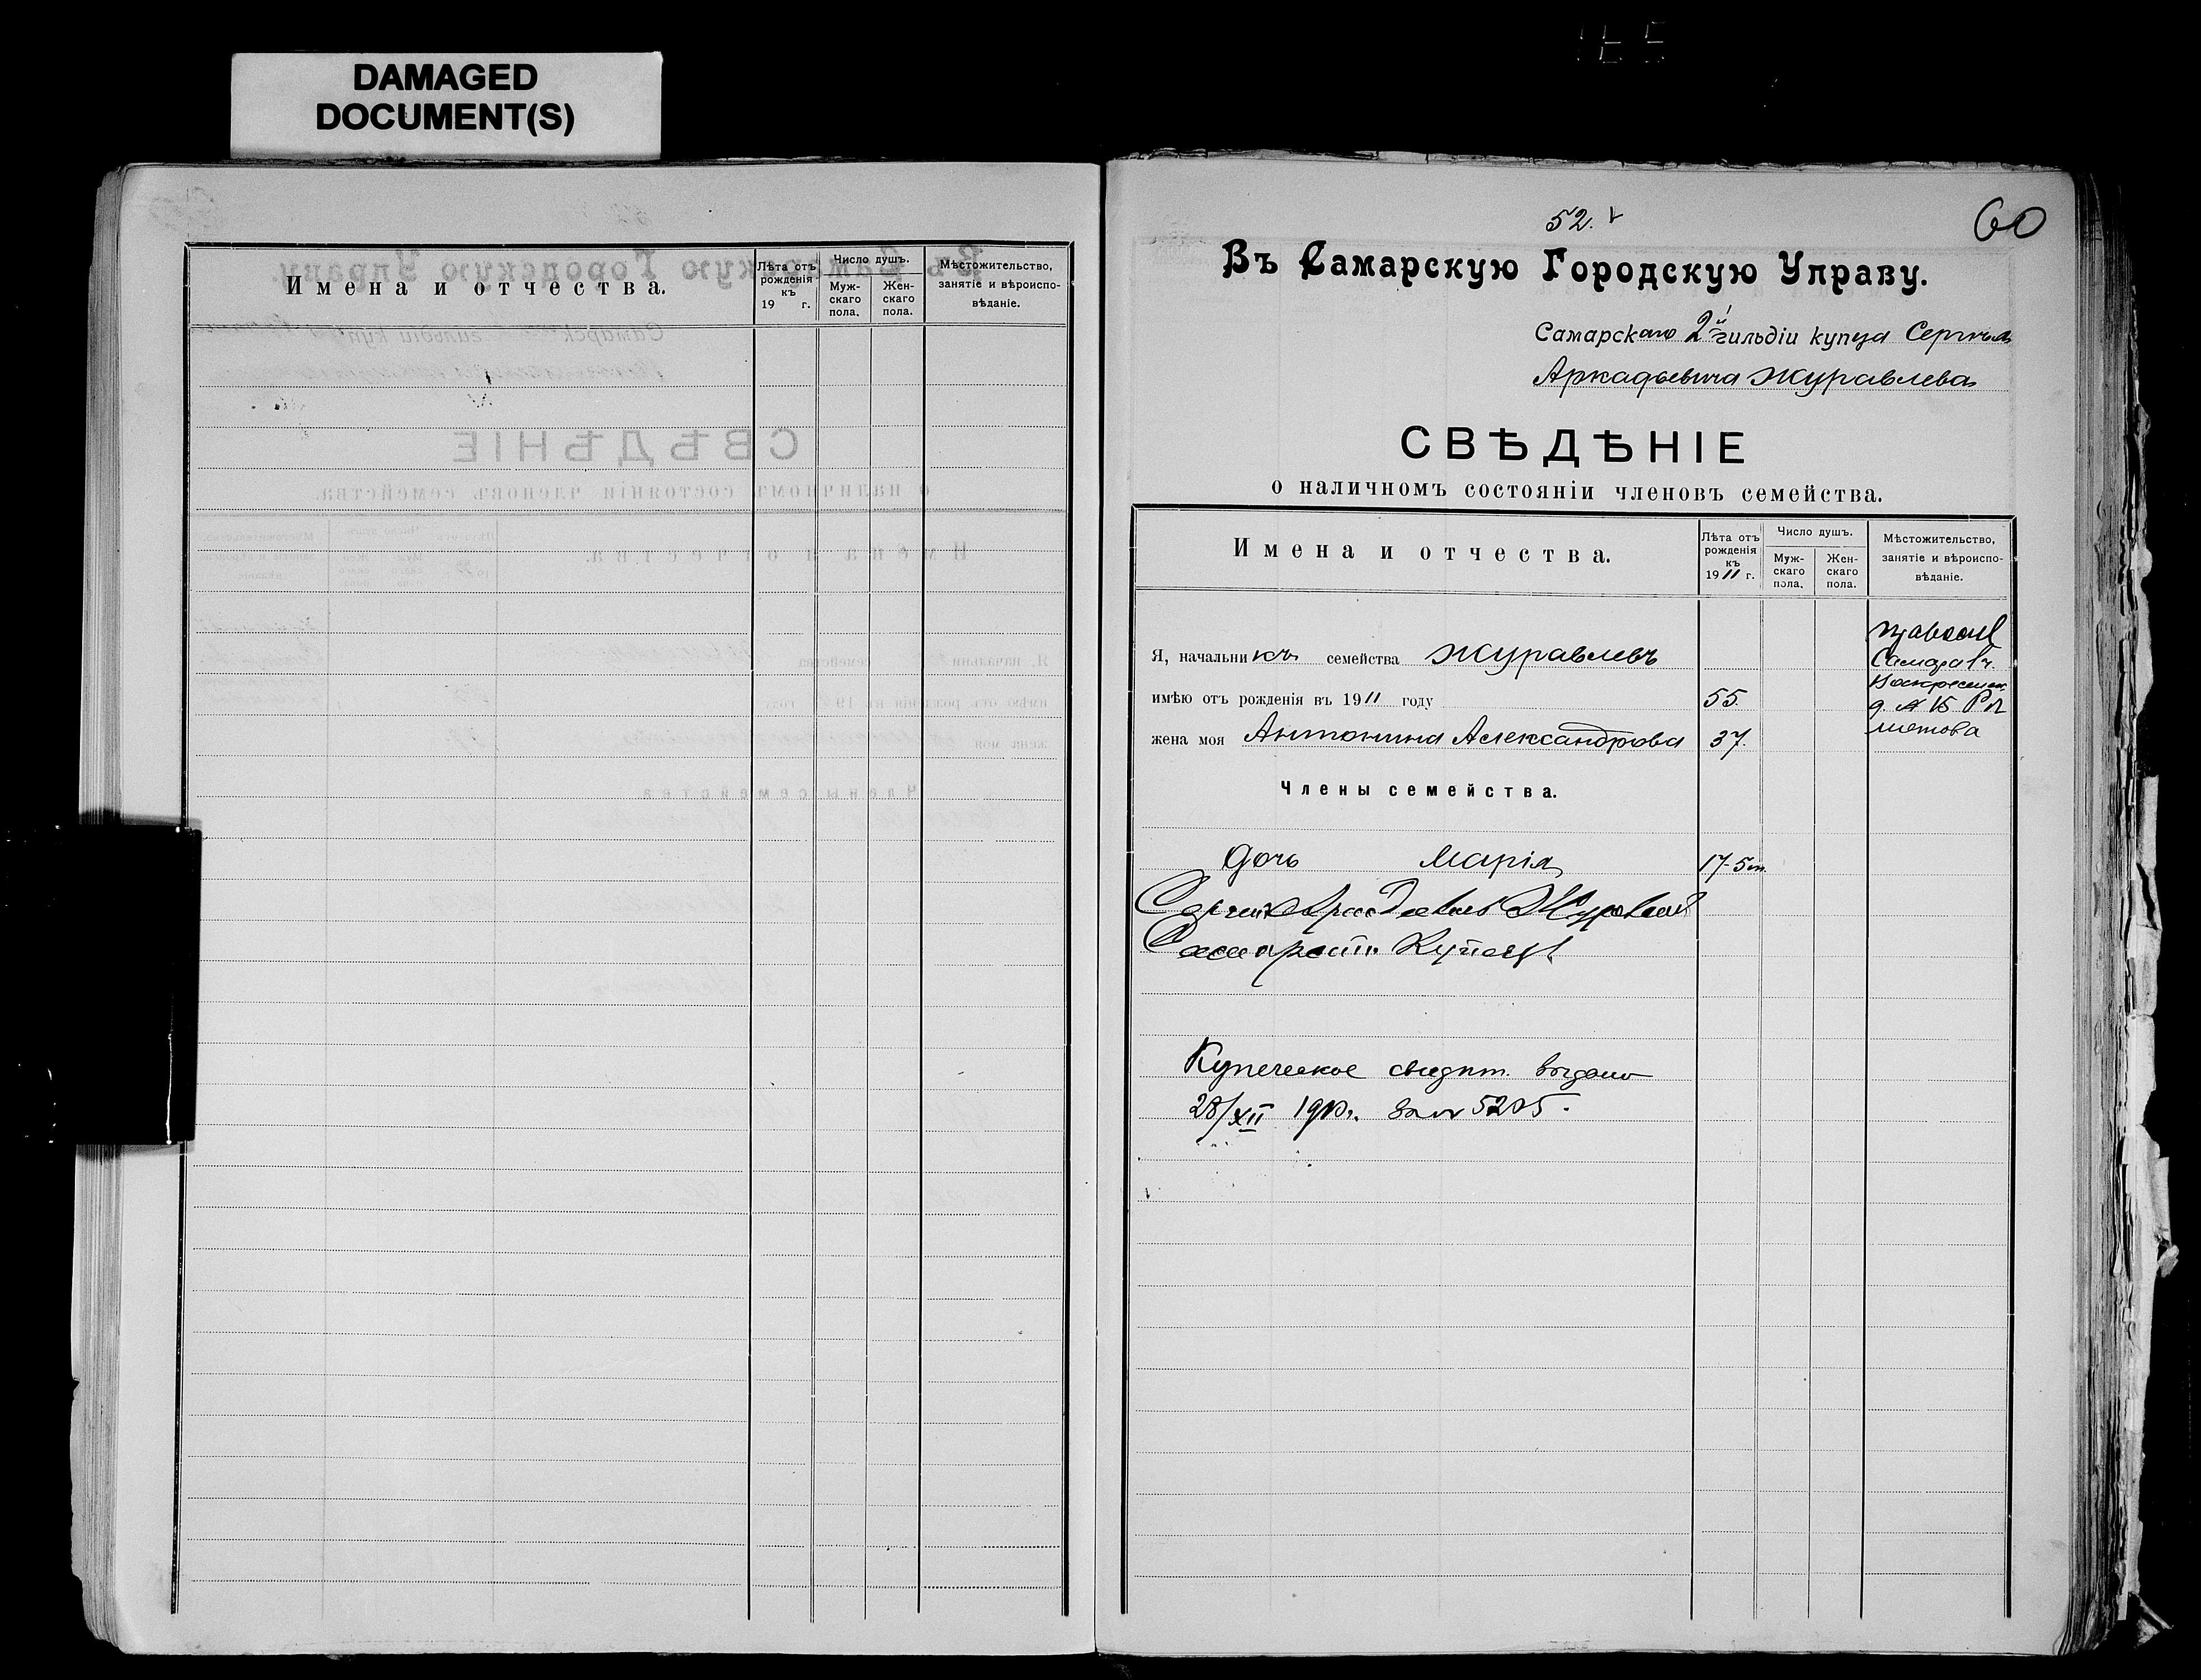 DAMAGED
DOCUMENT(S)
Имена и отчества.
Лѣта отъ рожденія къ 19 г.
Число душъ.
Муж-скаго пола.
Жен-скаго пола.
Мѣстожительство, занятіе и вѣроиспо-вѣданіе.
52.
60
Въ Самарскую Городскую Управу.
Самарскаго 2й гильдіи купца Сергѣя
Аркадьевича Журавлева
СВѢДѢНІЕ
о наличномъ состояніи членовъ семейства.
Имена и отчества.
Лѣта отъ рожденія къ 1911 г.
Число душъ.
Муж-скаго пола.
Жен-скаго пола.
Мѣстожительство, занятіе и вѣроиспо-вѣданіе.
Я, начальникъ семейства Журавлевъ
правосл
Самара
имѣю отъ рожденія въ 1911 году 55.
Воскресенск.
жена моя Антонина Александрова 37.
Члены семейства.
дочь Марія 17-5м.
Сергей Аркадьевъ Журавлев
Самарскій Купец
Купеческое свидѣт. выдано
28/XII 1910г. за № 5205.